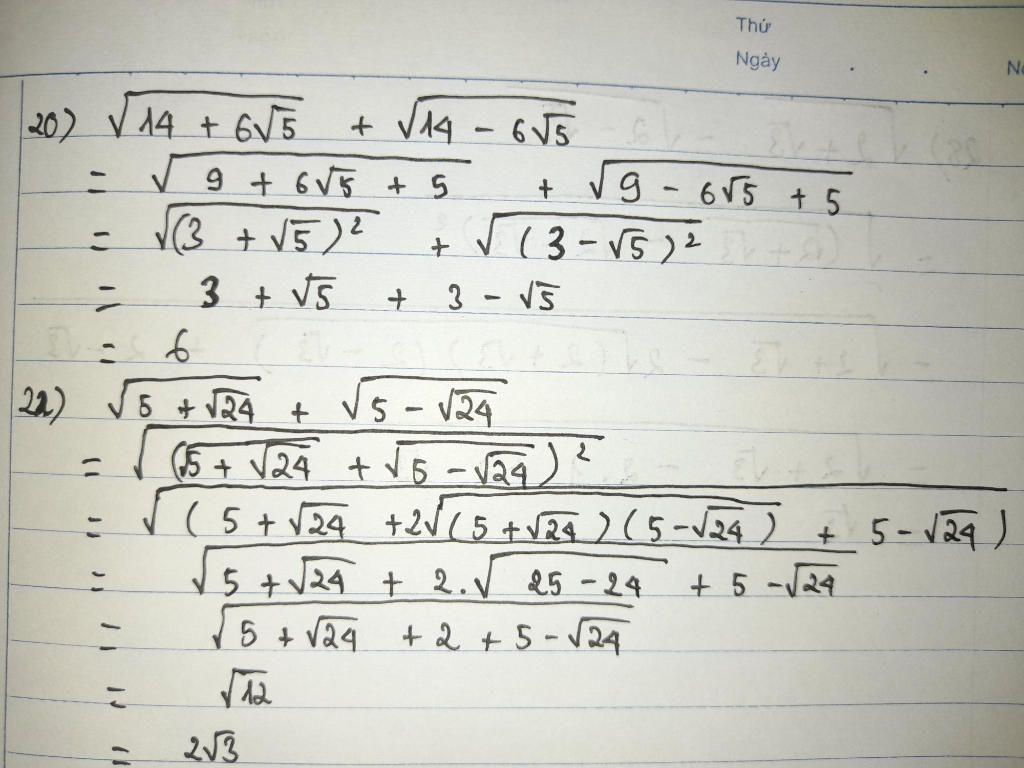 Thứ
Ngày
20) √(14 + 6√5) + √(14 - 6√5)
= √(9 + 6√5 + 5) + √(9 - 6√5 + 5)
= √((3 + √5)²) + √((3 - √5)²)
= 3 + √5 + 3 - √5
= 6
22) √(5 + √24) + √(5 - √24)
= √((√(5 + √24) + √(5 - √24))²)
= √((5 + √24 + 2√((5 + √24)(5 - √24)) + 5 - √24))
= √(5 + √24 + 2.√(25 - 24) + 5 - √24)
= √(5 + √24 + 2 + 5 - √24)
= √12
= 2√3